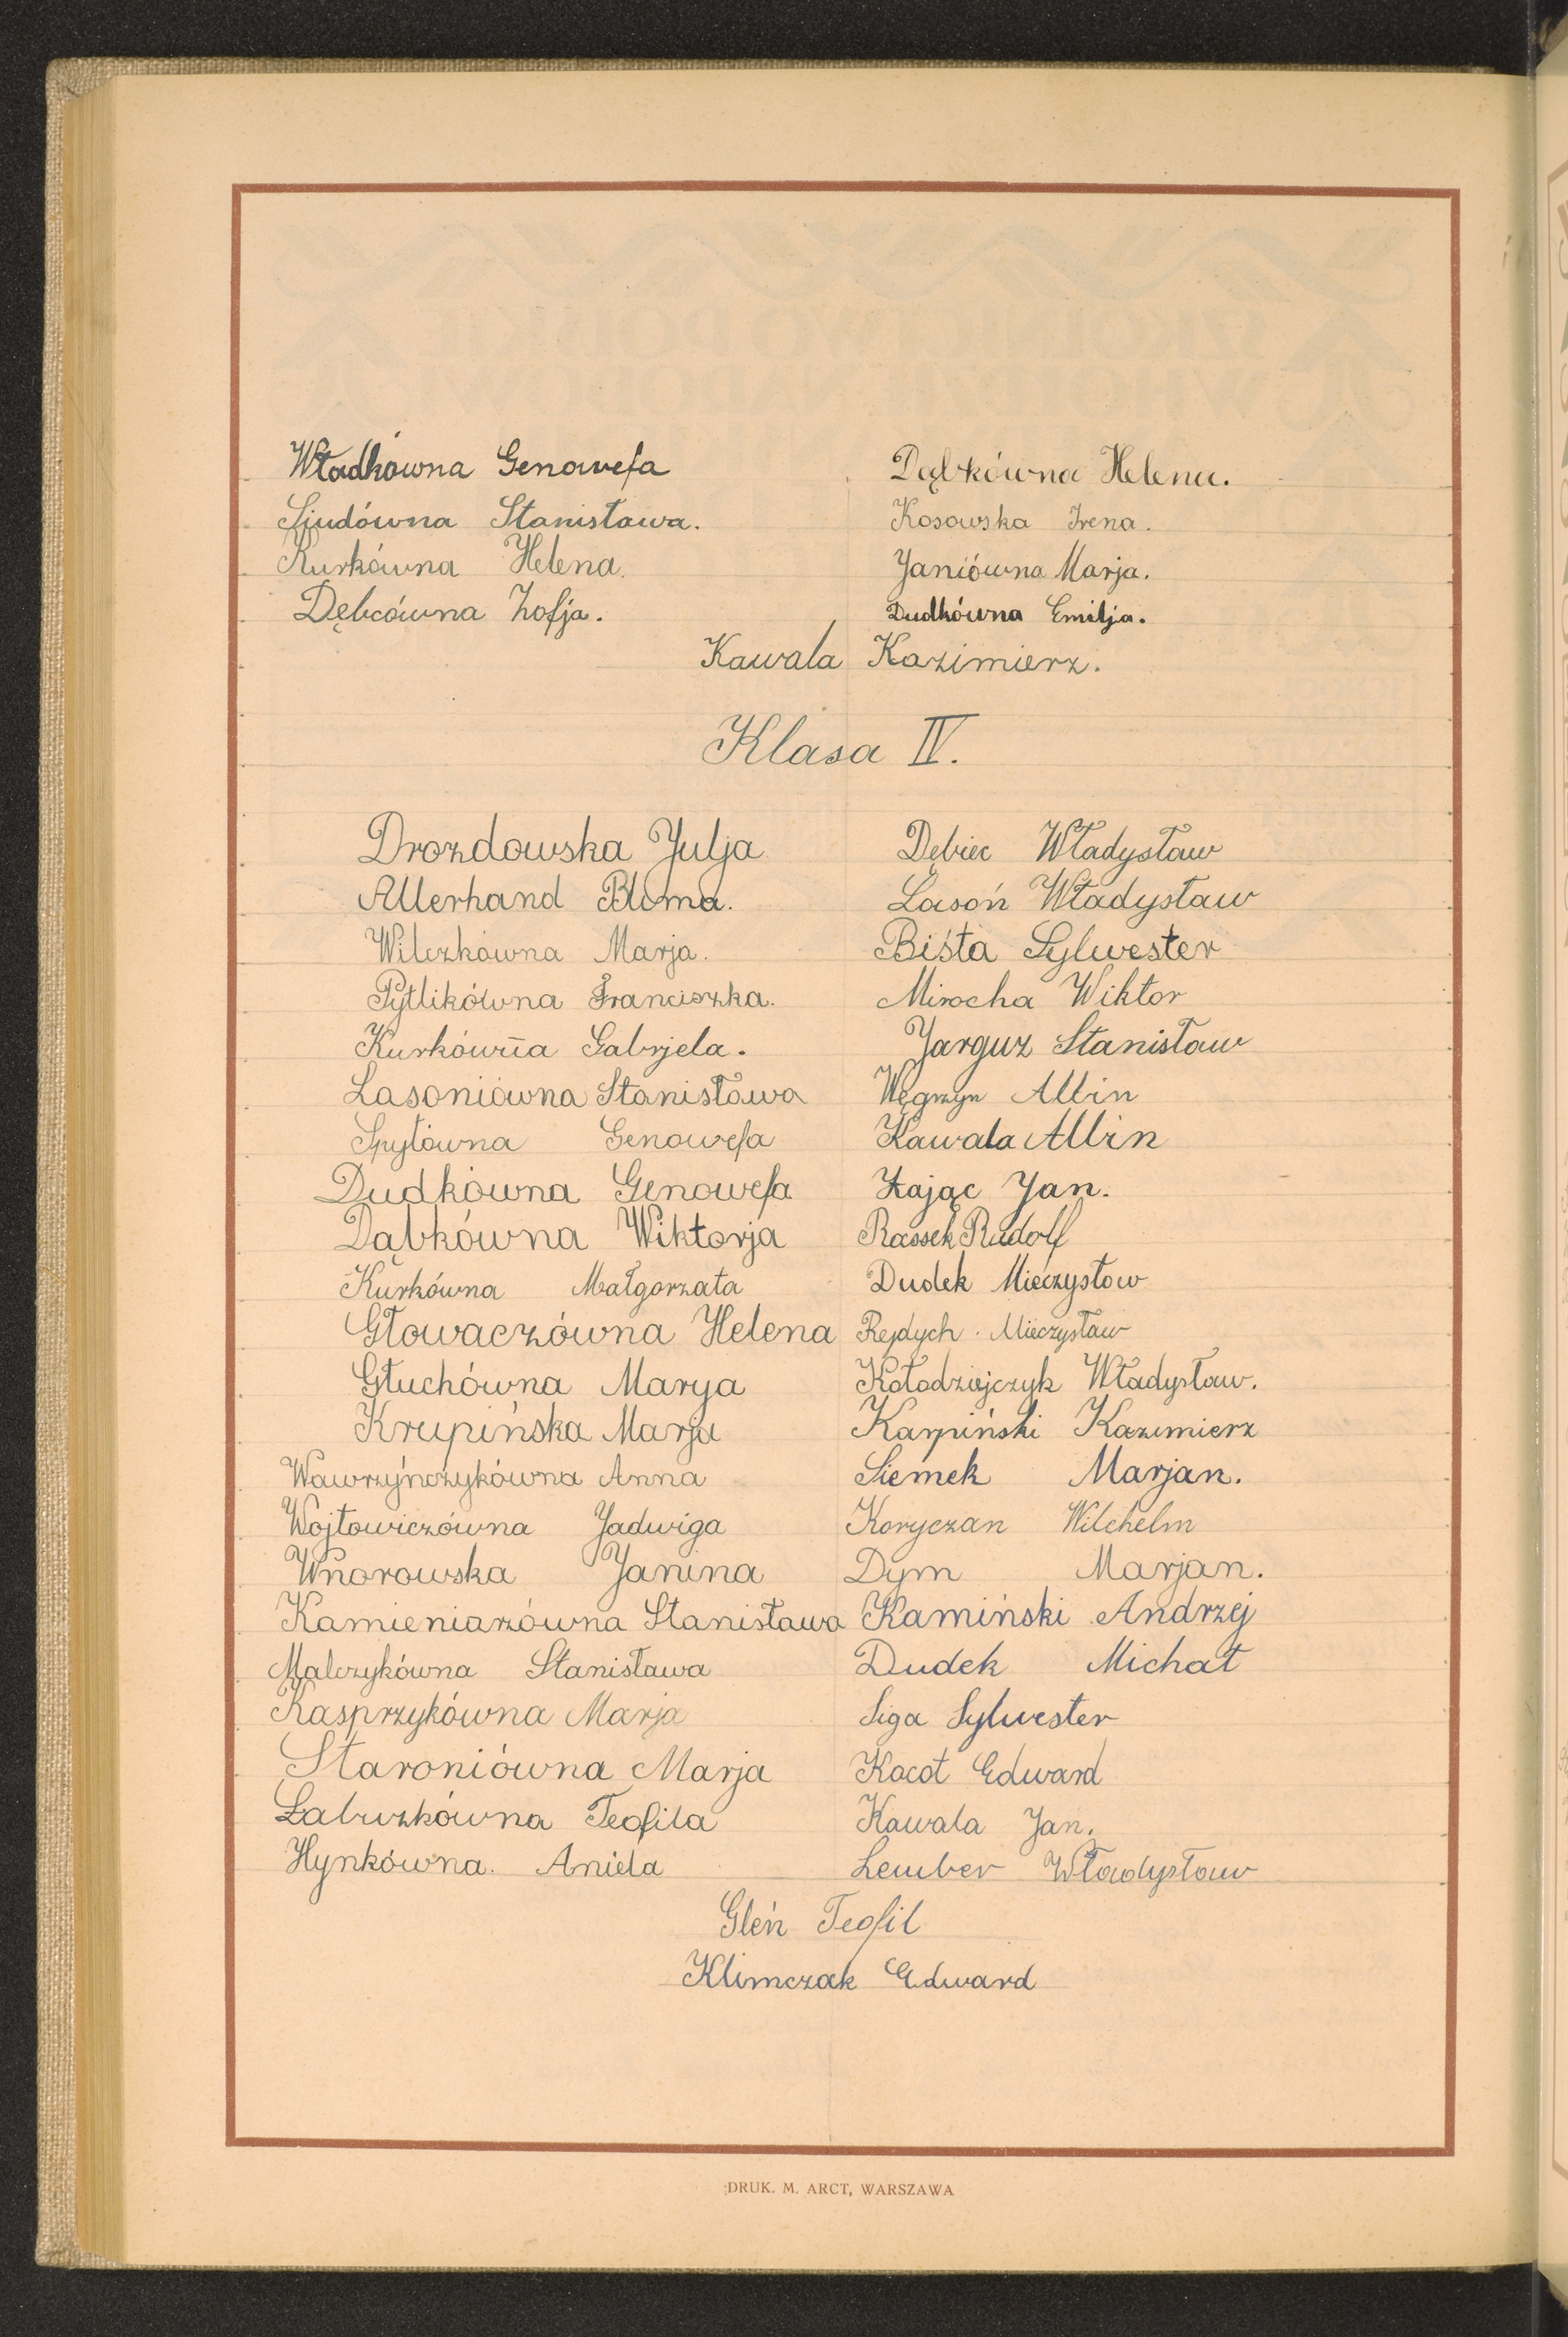 Władkówna Genowefa
Sjudówna Stanisława.
Kurkówna Helena.
Dębcówna Zofja.
Dąbkówna Helena.
Kosowska Irena.
Janiówna Marja.
Dudkówna Emilja.
Kawala Kazimierz.
Klasa IV.
Drozdowska Julja
Allerhand Bluma.
Wilczkówna Marja.
Pytlikówna Franciszka.
Kurkówna Gabrjela.
Lasoniówna Stanisława
Spytówna Genowefa
Dudkówna Genowefa
Dąbkówna Wiktorja
Kurkówna Małgorzata
Głowaczówna Helena
Głuchówna Marya
Krupińska Marja
Wawrzyńczykówna Anna
Wojtowiczówna Jadwiga
Wnorowska Janina
Kamieniarzówna Stanisława
Malczykówna Stanisława
Kasprzykówna Marja
Staroniówna Marja
Łabuzkówna Teofila
Hynkówna. Aniela
Dębiec Władysław
Lasoń Władysław
Biśta Sylwester
Mirocha Wiktor
Jarguz Stanisław
Węgrzyn Albin
Kawala Albin
Zając Jan.
Rassek Rudolf
Dudek Mieczysław
Rejdych Mieczysław
Kołodziejczyk Władysław.
Karpiński Kazimierz
Siemek Marjan.
Koryczan Wilchelm
Dym Marjan.
Kamiński Andrzej
Dudek Michał
Siga Sylwester
Kocot Edward
Kawala Jan.
Lember Władysław
Gleń Teofil
Klimczak Edward
DRUK. M. ARCT, WARSZAWA